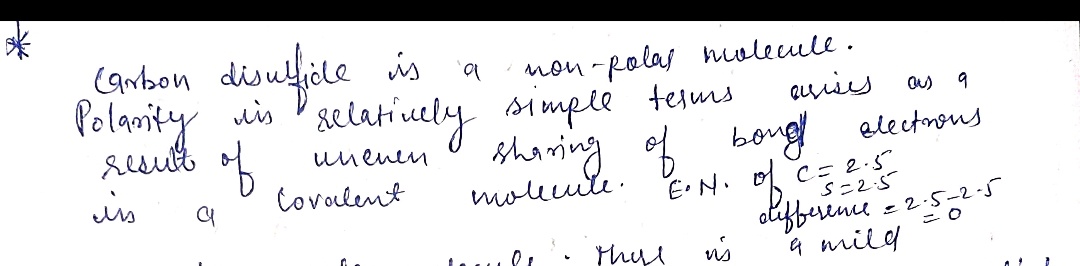 *
Carbon disulfide is a non-polar molecule.
Polarity in relatively simple terms arises as a
result of uneven sharing of bond electrons
in a covalent molecule. E.N. of C = 2.5
S = 2.5
difference = 2.5-2.5
= 0
There is a mild